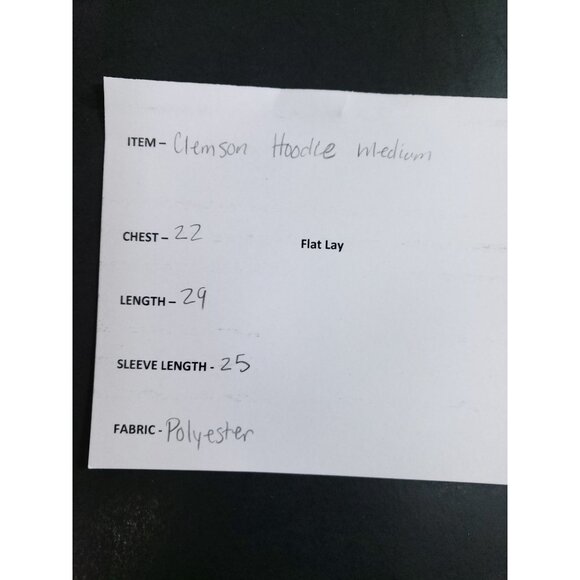 ITEM – Clemson Hoodie Medium
CHEST – 22
Flat Lay
LENGTH – 29
SLEEVE LENGTH - 25
FABRIC - Polyester